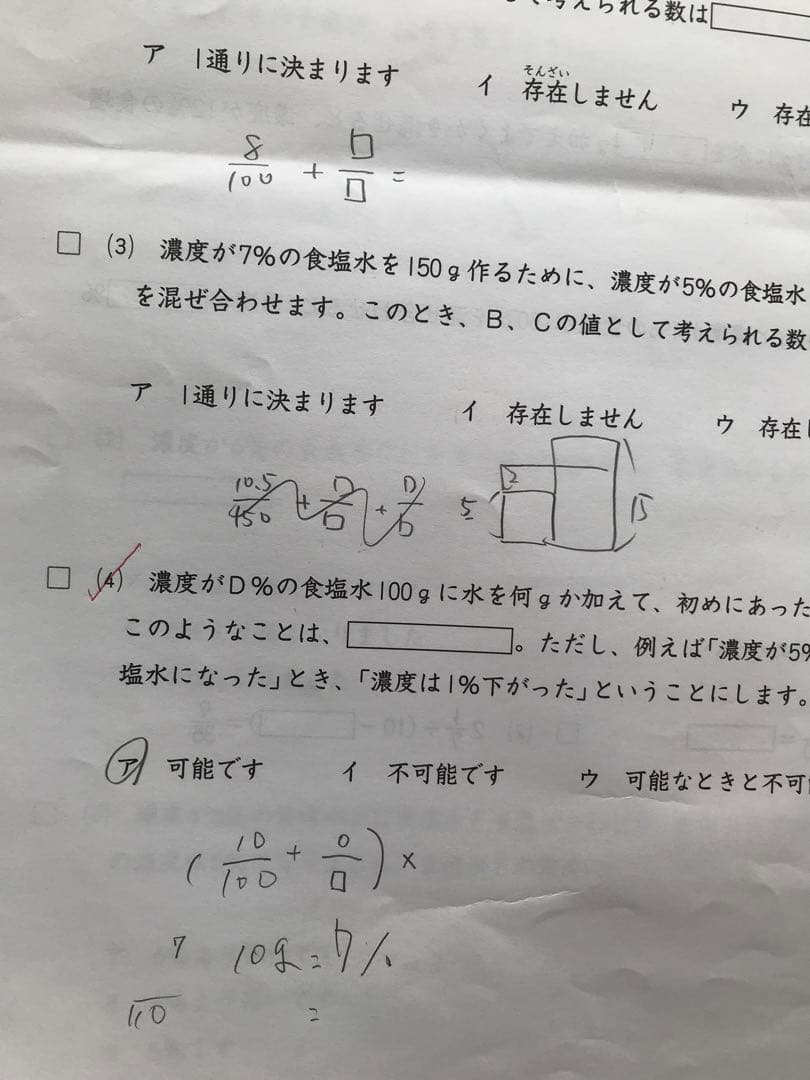 て考えられる数は
ア 1通りに決まります イ 存在しません ウ 存在
そんざい
8/100 + □/□ =
□ (3) 濃度が7%の食塩水を150g作るために、濃度が5%の食塩水
を混ぜ合わせます。このとき、B、Cの値として考えられる数
ア 1通りに決まります イ 存在しません ウ 存在し
10.5/450 + □/□ + □/□
2
5 15
□ (4) 濃度がD%の食塩水100gに水を何gか加えて、初めにあった
このようなことは、 。ただし、例えば「濃度が5%
塩水になった」とき、「濃度は1%下がった」ということにします。
ア 可能です イ 不可能です ウ 可能なときと不可能
( 10/100 + 0/□ ) ×
7 10g = 7%
110 =